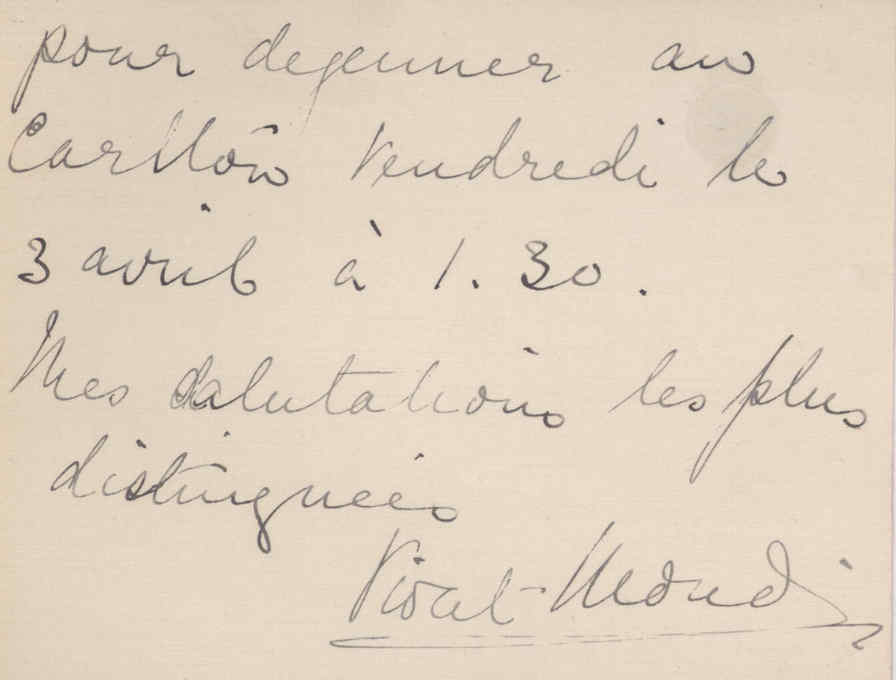 pour dejeuner au
Carlton Vendredi le
3 avril à 1.30.
Mes salutations les plus
distinguées